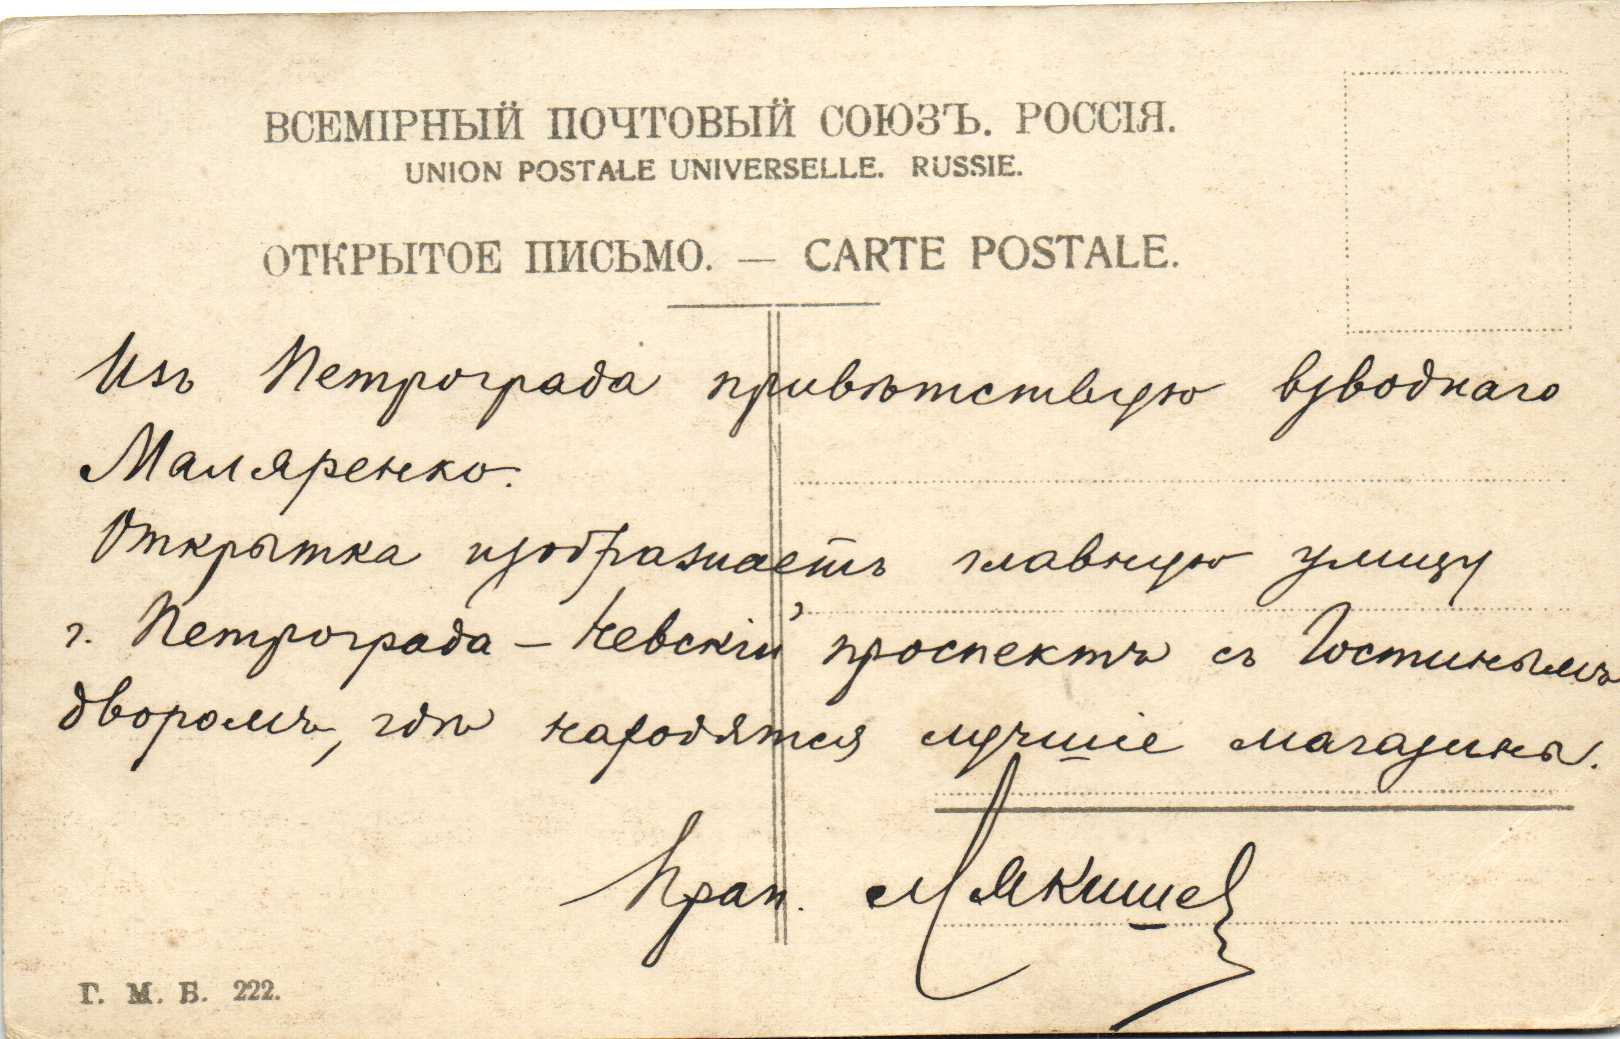 ВСЕМІРНЫЙ ПОЧТОВЫЙ СОЮЗЪ. РОССІЯ.
UNION POSTALE UNIVERSELLE. RUSSIE.
ОТКРЫТОЕ ПИСЬМО. — CARTE POSTALE.
Изъ Петрограда привѣтствую взводнаго
Маляренко.
Открытка изображаетъ главную улицу
г. Петрограда – Невскій проспектъ съ Гостинымъ
дворомъ, гдѣ находятся лучшіе магазины.
Прап. Мякишев
Г. М. Б. 222.